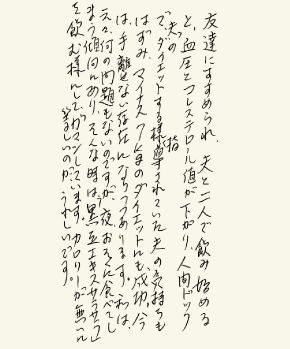 友達にすすめられ、夫と二人で飲み始める
と、血圧とコレステロール値が下がり、人間ドック
で"ダイエットする様指導されていた夫の気持ちも
夫の
はずみ、マイナス7kgのダイエットにも成功。今
は、手離せない存在になりつつあります。私は、
元々何の問題もないのですが、夜おそくに食べてし
まう傾向にあり、そんな時は黒豆エキスサラサラ
を飲む様にして、ガマンしています。カロリーが無いに
等しいのが、うれしいです。